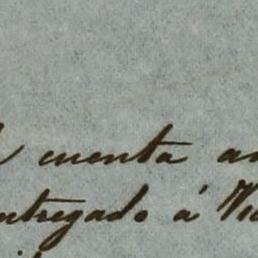 cuenta an
ntregado á Vic